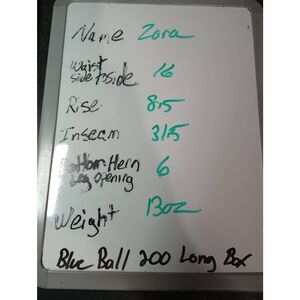 Name Zara
Waist
side to side 16
Rise 8.5
Inseam 31.5
Bottom Hem
Leg opening 6
Weight 13oz
Blue Ball 200 Long Box